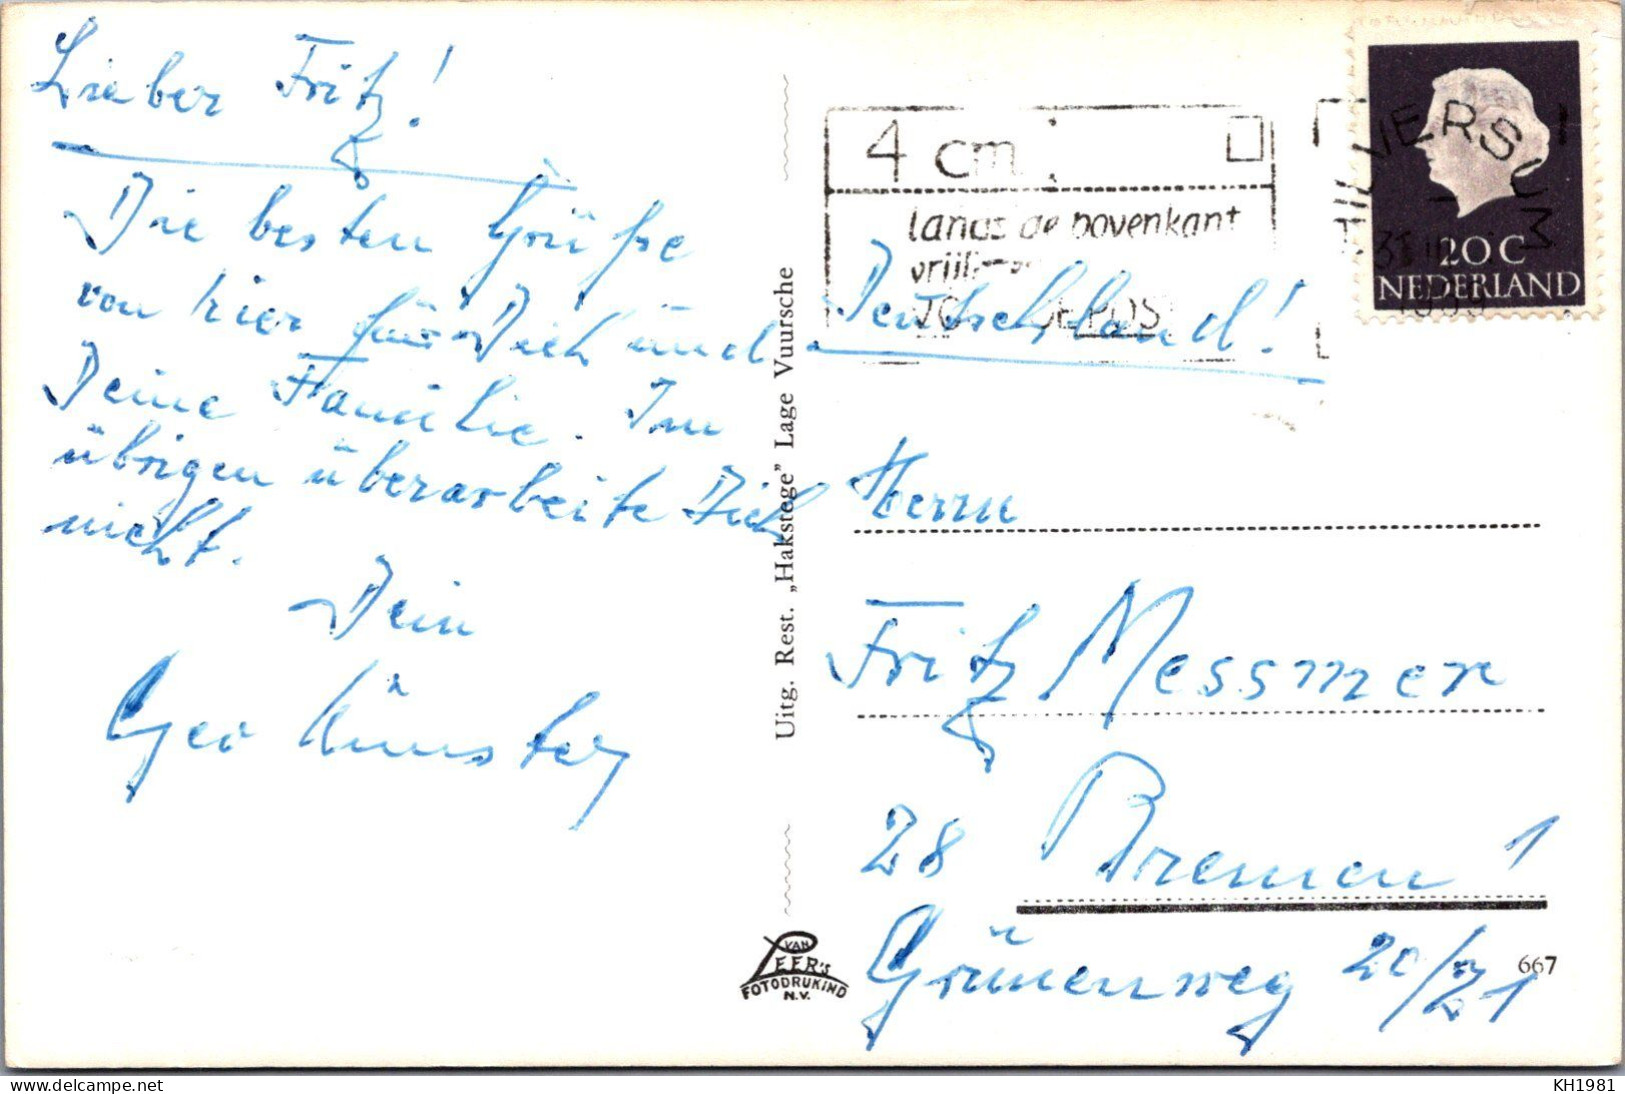 Lieber Fritz!
Die besten Grüße
von hier für Dich und
Deine Familie. Im
übrigen überarbeite Dich
nicht.
Dein
Uitg. Rest. „Hakstege” Lage Vuursche
VAN
LEER's
FOTODRUKIND
N.V.
4 cm
langs de bovenkant
HILVERSUM
20 C
NEDERLAND
Deutschland!
Herrn
Fritz Messmer
28 Bremen 1
Grünenweg 20/21
667
delcampe.net
KH1981